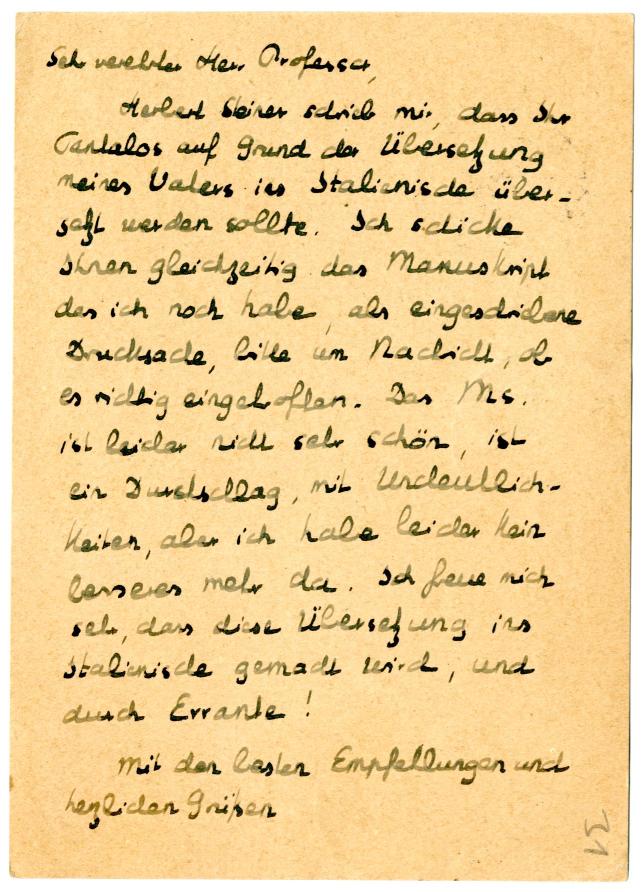 Sehr verehrter Herr Professor,
Herbert Steiner schrieb mir, dass Ihr
Tantalos auf Grund der Übersetzung
meines Vaters ins Italienische über-
setzt werden sollte. Ich schicke
Ihnen gleichzeitig das Manuskript
das ich noch habe, als eingeschriebene
Drucksache, bitte um Nachricht, ob
es richtig eingetroffen. Das Ms.
ist leider nicht sehr schön, ist
ein Durchschlag, mit Undeutlich-
keiten, aber ich habe leider kein
besseres mehr da. Ich freue mich
sehr, dass diese Übersetzung ins
Italienische gemacht wird, und
durch Errante!
Mit den besten Empfehlungen und
herzlichen Grüßen
31